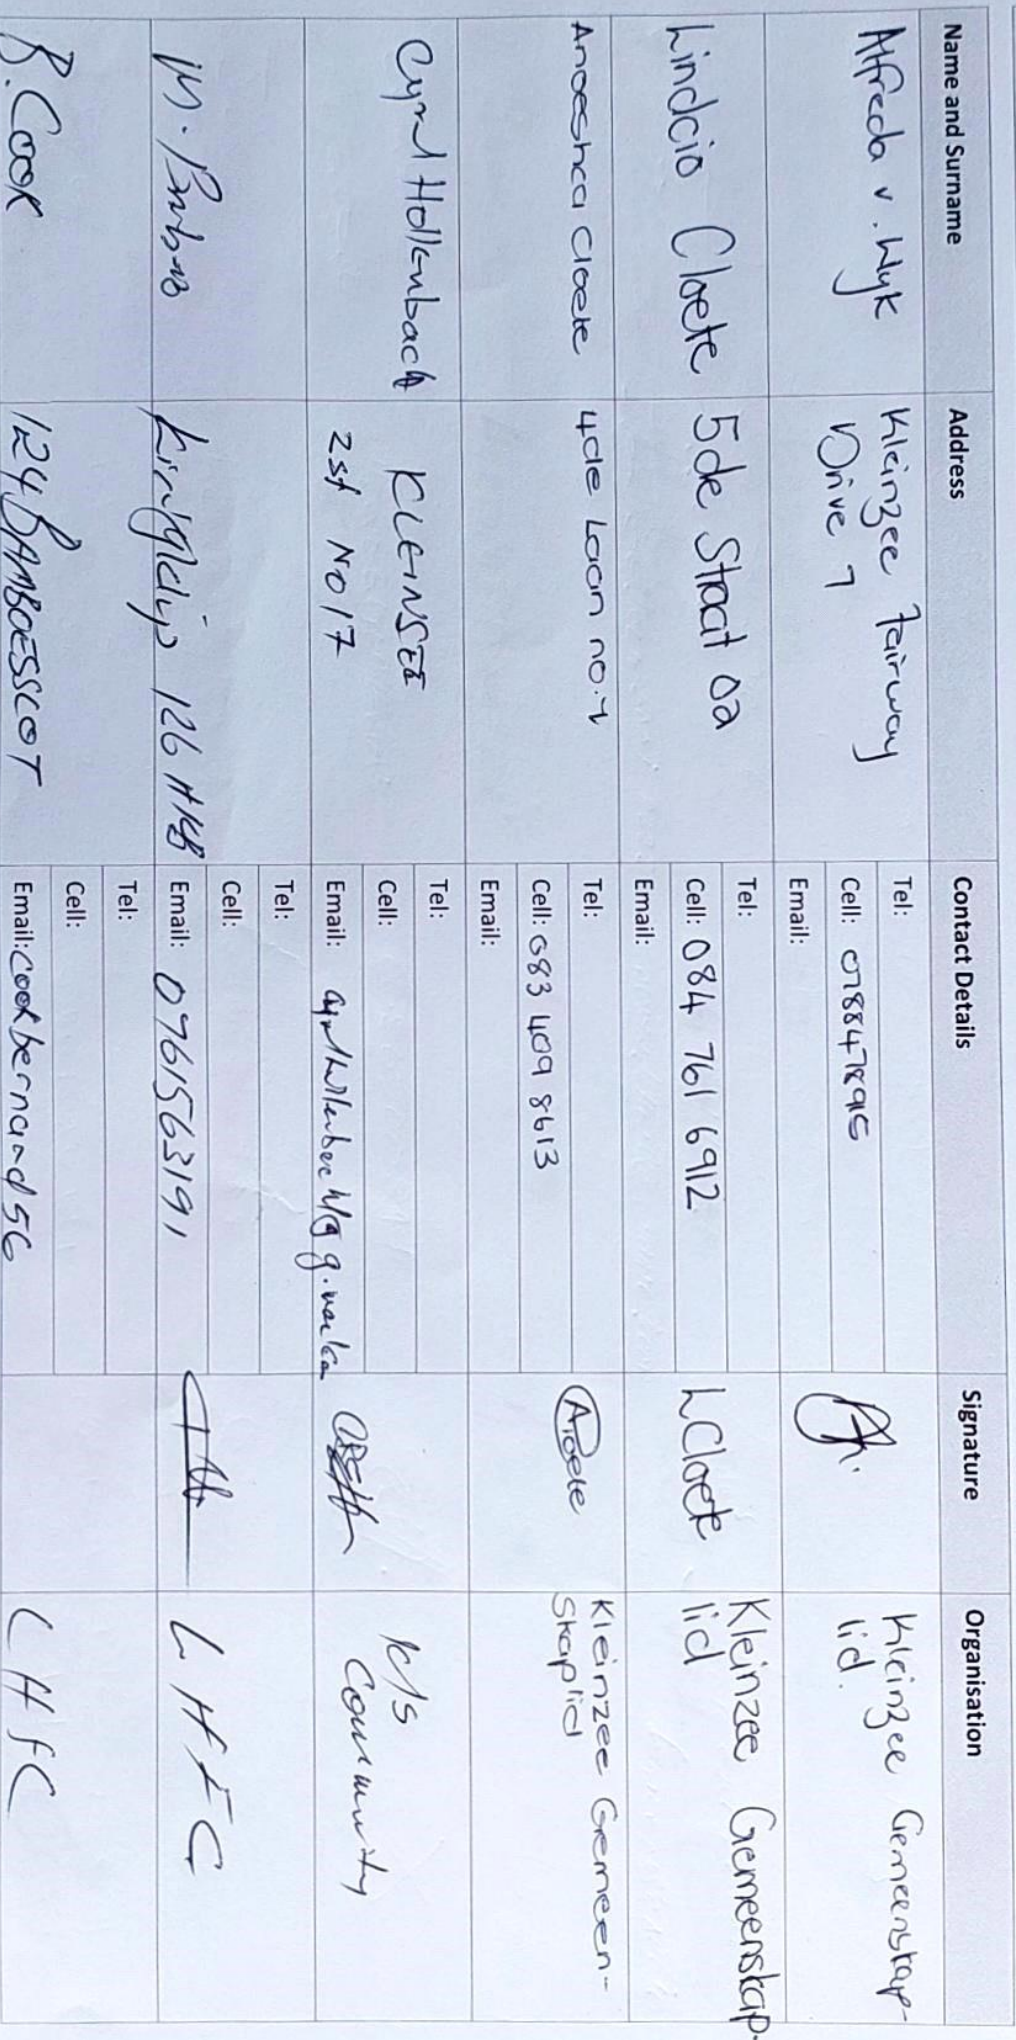 Name and Surname Address Contact Details Signature Organisation
Alfreda v. Wyk
Kleinzee Fairway
Drive 7
Tel:
Cell: 0788478915
Email:
Kleinzee Gemeenskap-
lid.
Lindcio Cloete
5de Straat 02
Tel:
Cell: 084 761 6912
Email:
LCloete
Kleinzee Gemeenskap-
lid
Anoeshca Cloete
4de Laan no.
Tel:
Cell: 083 409 8613
Email:
Kleinzee Gemeen-
Skaplid
Cyril Hollenbach
KLEINSEE
2st No 17
Tel:
Cell:
Email:
K/S
Community
M.
126 HKB
Tel:
Cell:
Email: 0761563191
L H F C
B. Cook
124 BAMBOESSLOT
Tel:
Cell:
Email: cookbernard56
L H F C